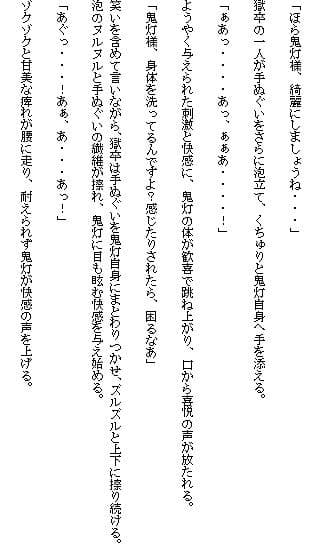 「ほら鬼灯様、綺麗にしましょうね・・・」
獄卒の一人が手ぬぐいをさらに泡立て、くちゅりと鬼灯自身へ手を添える。
「ぁあっ・・・・あっ、ぁぁあ・・・・！」
ようやく与えられた刺激と快感に、鬼灯の体が歓喜で跳ね上がり、口から喜悦の声が放たれる。
「鬼灯様、身体を洗ってるんですよ？感じたりされたら、困るなあ」
笑いを含めて言いながら、獄卒は手ぬぐいを鬼灯自身にまとわりつかせ、ズルズルと上下に擦り続ける。
泡のヌルヌルと手ぬぐいの繊維が擦れ、鬼灯に目も眩む快感を与え始める。
「あぐっ・・・！あぁ、あ・・・あっ！」
ゾクゾクと甘美な痺れが腰に走り、耐えられず鬼灯が快感の声を上げる。